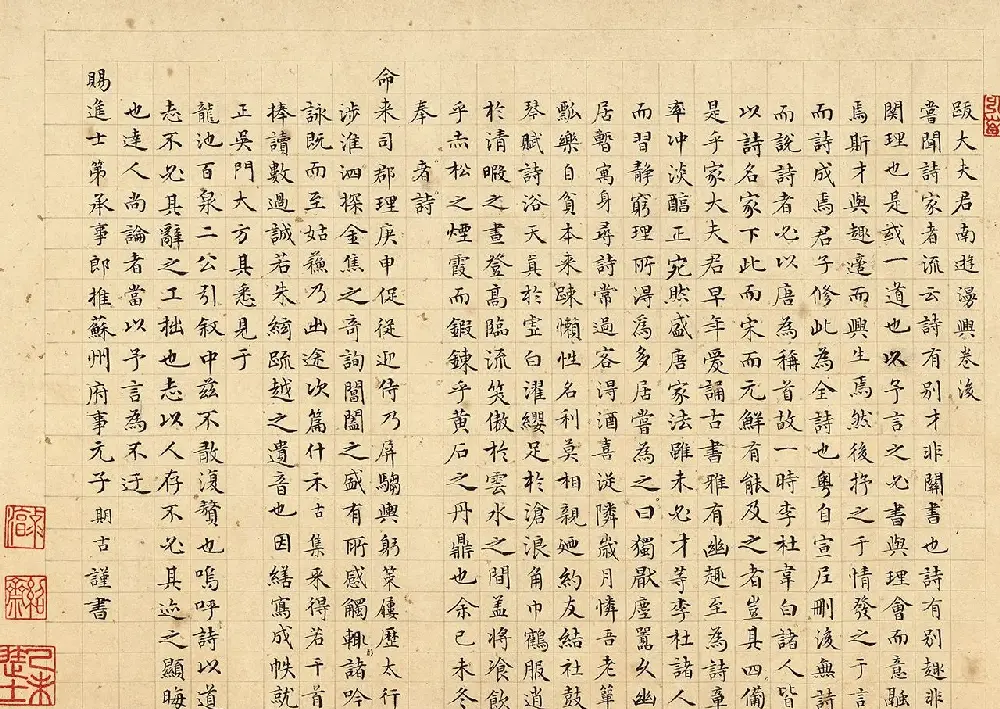 跋大夫君南遊漫興卷後
嘗聞詩家者流云詩有别才非關書也詩有别趣非
関理也是或一道也以予言之必書與理會而意融
焉斯才與趣而興生焉然後抒之于情發之于言
而詩成焉君子修此為全詩也粤自宣尼刪後無詩
而說詩者必以唐為稱首故一時李杜韋白諸人皆
以詩名家下此而宋而元鮮有能及之者豈其四備
是乎家大夫君早年愛誦古書雅有幽趣至為詩章
率冲淡醞正宛然盛唐家法雖未必才等李杜諸人
而習静窮理所得為多居嘗為之曰獨厭塵囂久幽
居暫寓身尋詩常過客得酒喜従隣歲月憐吾老簞
瓢樂自貧本来踈懶性名利莫相親廼約友結社鼓
琴賦詩浴天真於虛白濯纓足於滄浪角巾鶴服逍
於清暇之晝登高臨流笑傲於雲水之間盖将飡飲
乎赤松之煙霞而鍜鍊乎黄石之丹鼎也余己未冬
奉 者詩
命来司郡理庚申促従迎侍乃屏騶輿躬僂歷太行
涉淮泗探金焦之奇詢閶闔之盛有所感觸輒諸吟
詠既而至姑蘇乃出途次篇什示古集来得若干首
捧讀數過誠若朱絃疏越之遺音也因繕寫成帙就
正吳門大方具悉見于
龍池百泉二公引叙中兹不敢復贅也嗚呼詩以道
志不必其辭之工拙也志以人存不必其迹之顯晦
也達人尚論者當以予言為不迂
賜進士第承事郎推蘇州府事元子期古謹書
己未進士